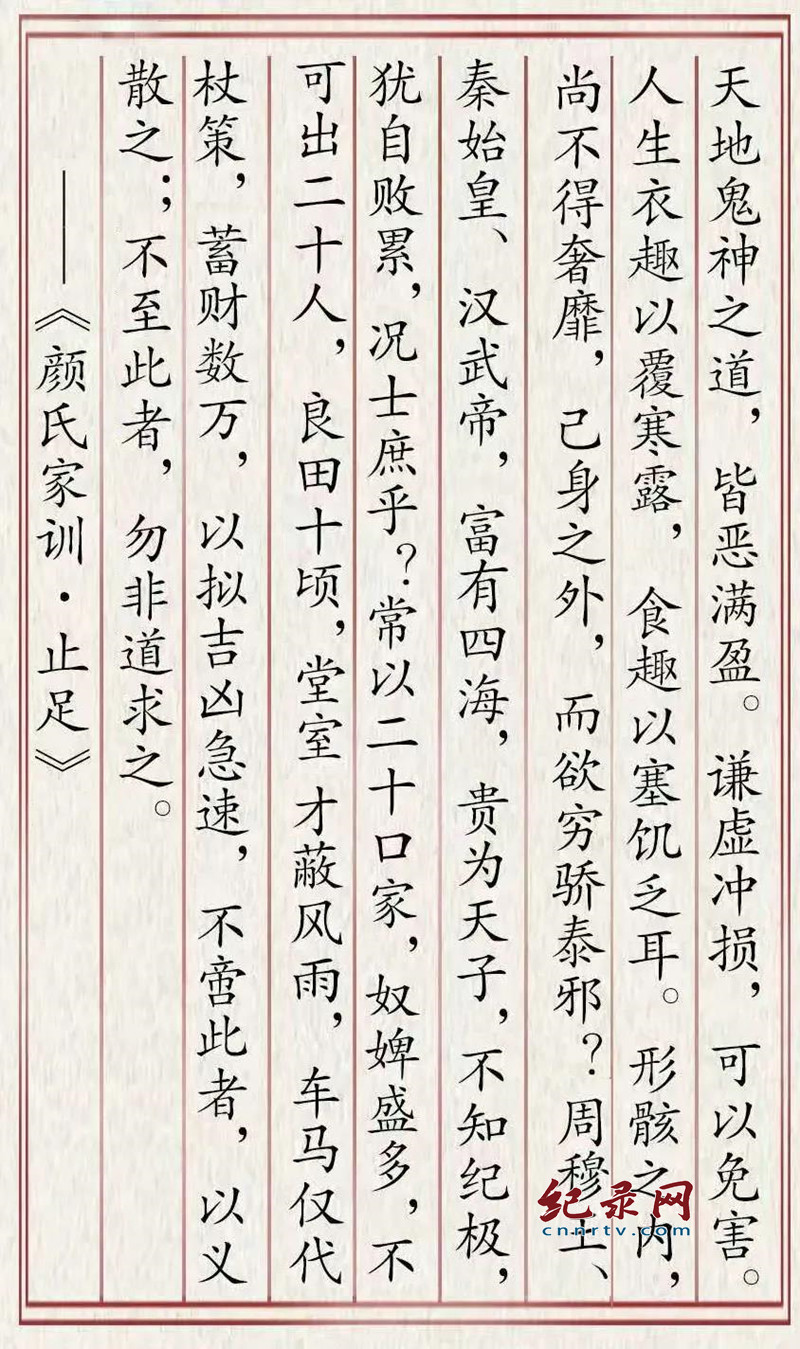 天地鬼神之道，皆恶满盈。谦虚冲损，可以免害。
人生衣趣以覆寒露，食趣以塞饥乏耳。形骸之内，
尚不得奢靡，己身之外，而欲穷骄泰邪？周穆王、
秦始皇、汉武帝，富有四海，贵为天子，不知纪极，
犹自败累，况士庶乎？常以二十口家，奴婢盛多，不
可出二十人，良田十顷，堂室才蔽风雨，车马仅代
杖策，蓄财数万，以拟吉凶急速，不啻此者，以义
散之；不至此者，勿非道求之。
——《颜氏家训·止足》
纪录网
cnnrtv.com